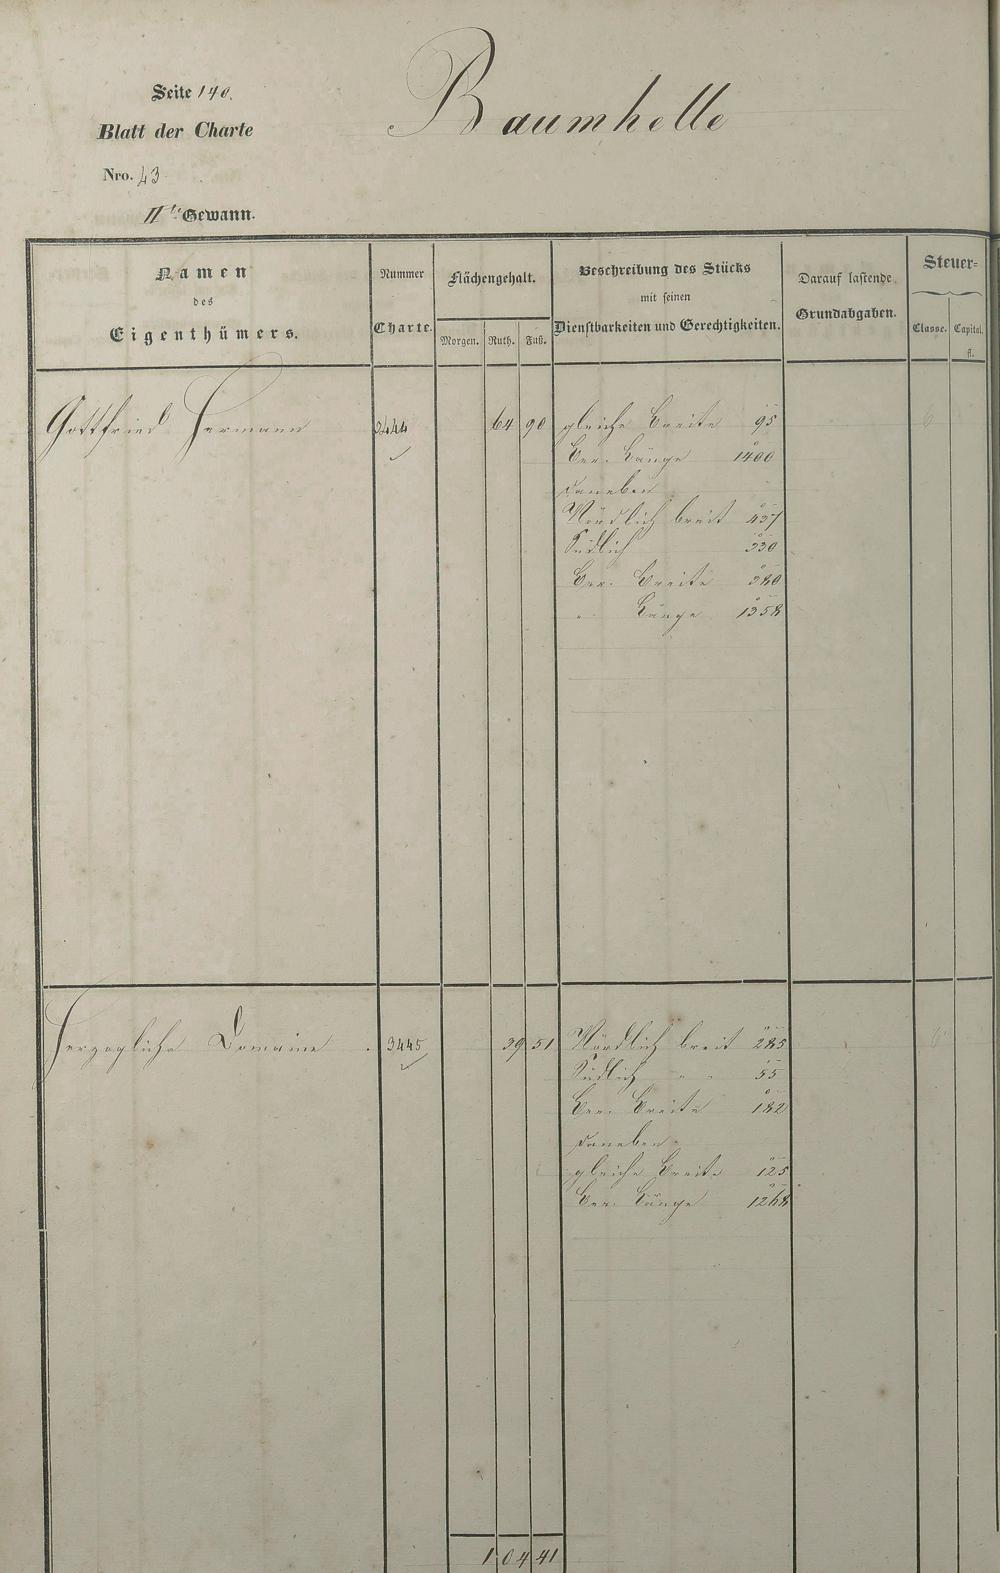 Seite 140.
Baumhelle
Blatt der Charte
Nro. 43
IIte Gewann.
Namen
des
Eigenthümers.
Nummer
Charte.
Flächengehalt.
Morgen. Ruth. Fuß.
Beschreibung des Stücks
mit seinen
Dienstbarkeiten und Gerechtigkeiten.
Darauf lastende
Grundabgaben.
Steuer-
Classe. Capital.
fl.
Gottfried Hermann 3444 64 90 gleiche Breite 95
Ber. Länge 1400
Daneben
Nördlich breit 437
Südlich 330
Ber. Breite 380
" Länge 1358
Herzogliche Domaine . 3445 39 51 Nördlich breit 285
Südlich " " 55
Ber. Breite 182
Daneben
gleiche Breite 125
Ber. Länge 1268
1 04 41